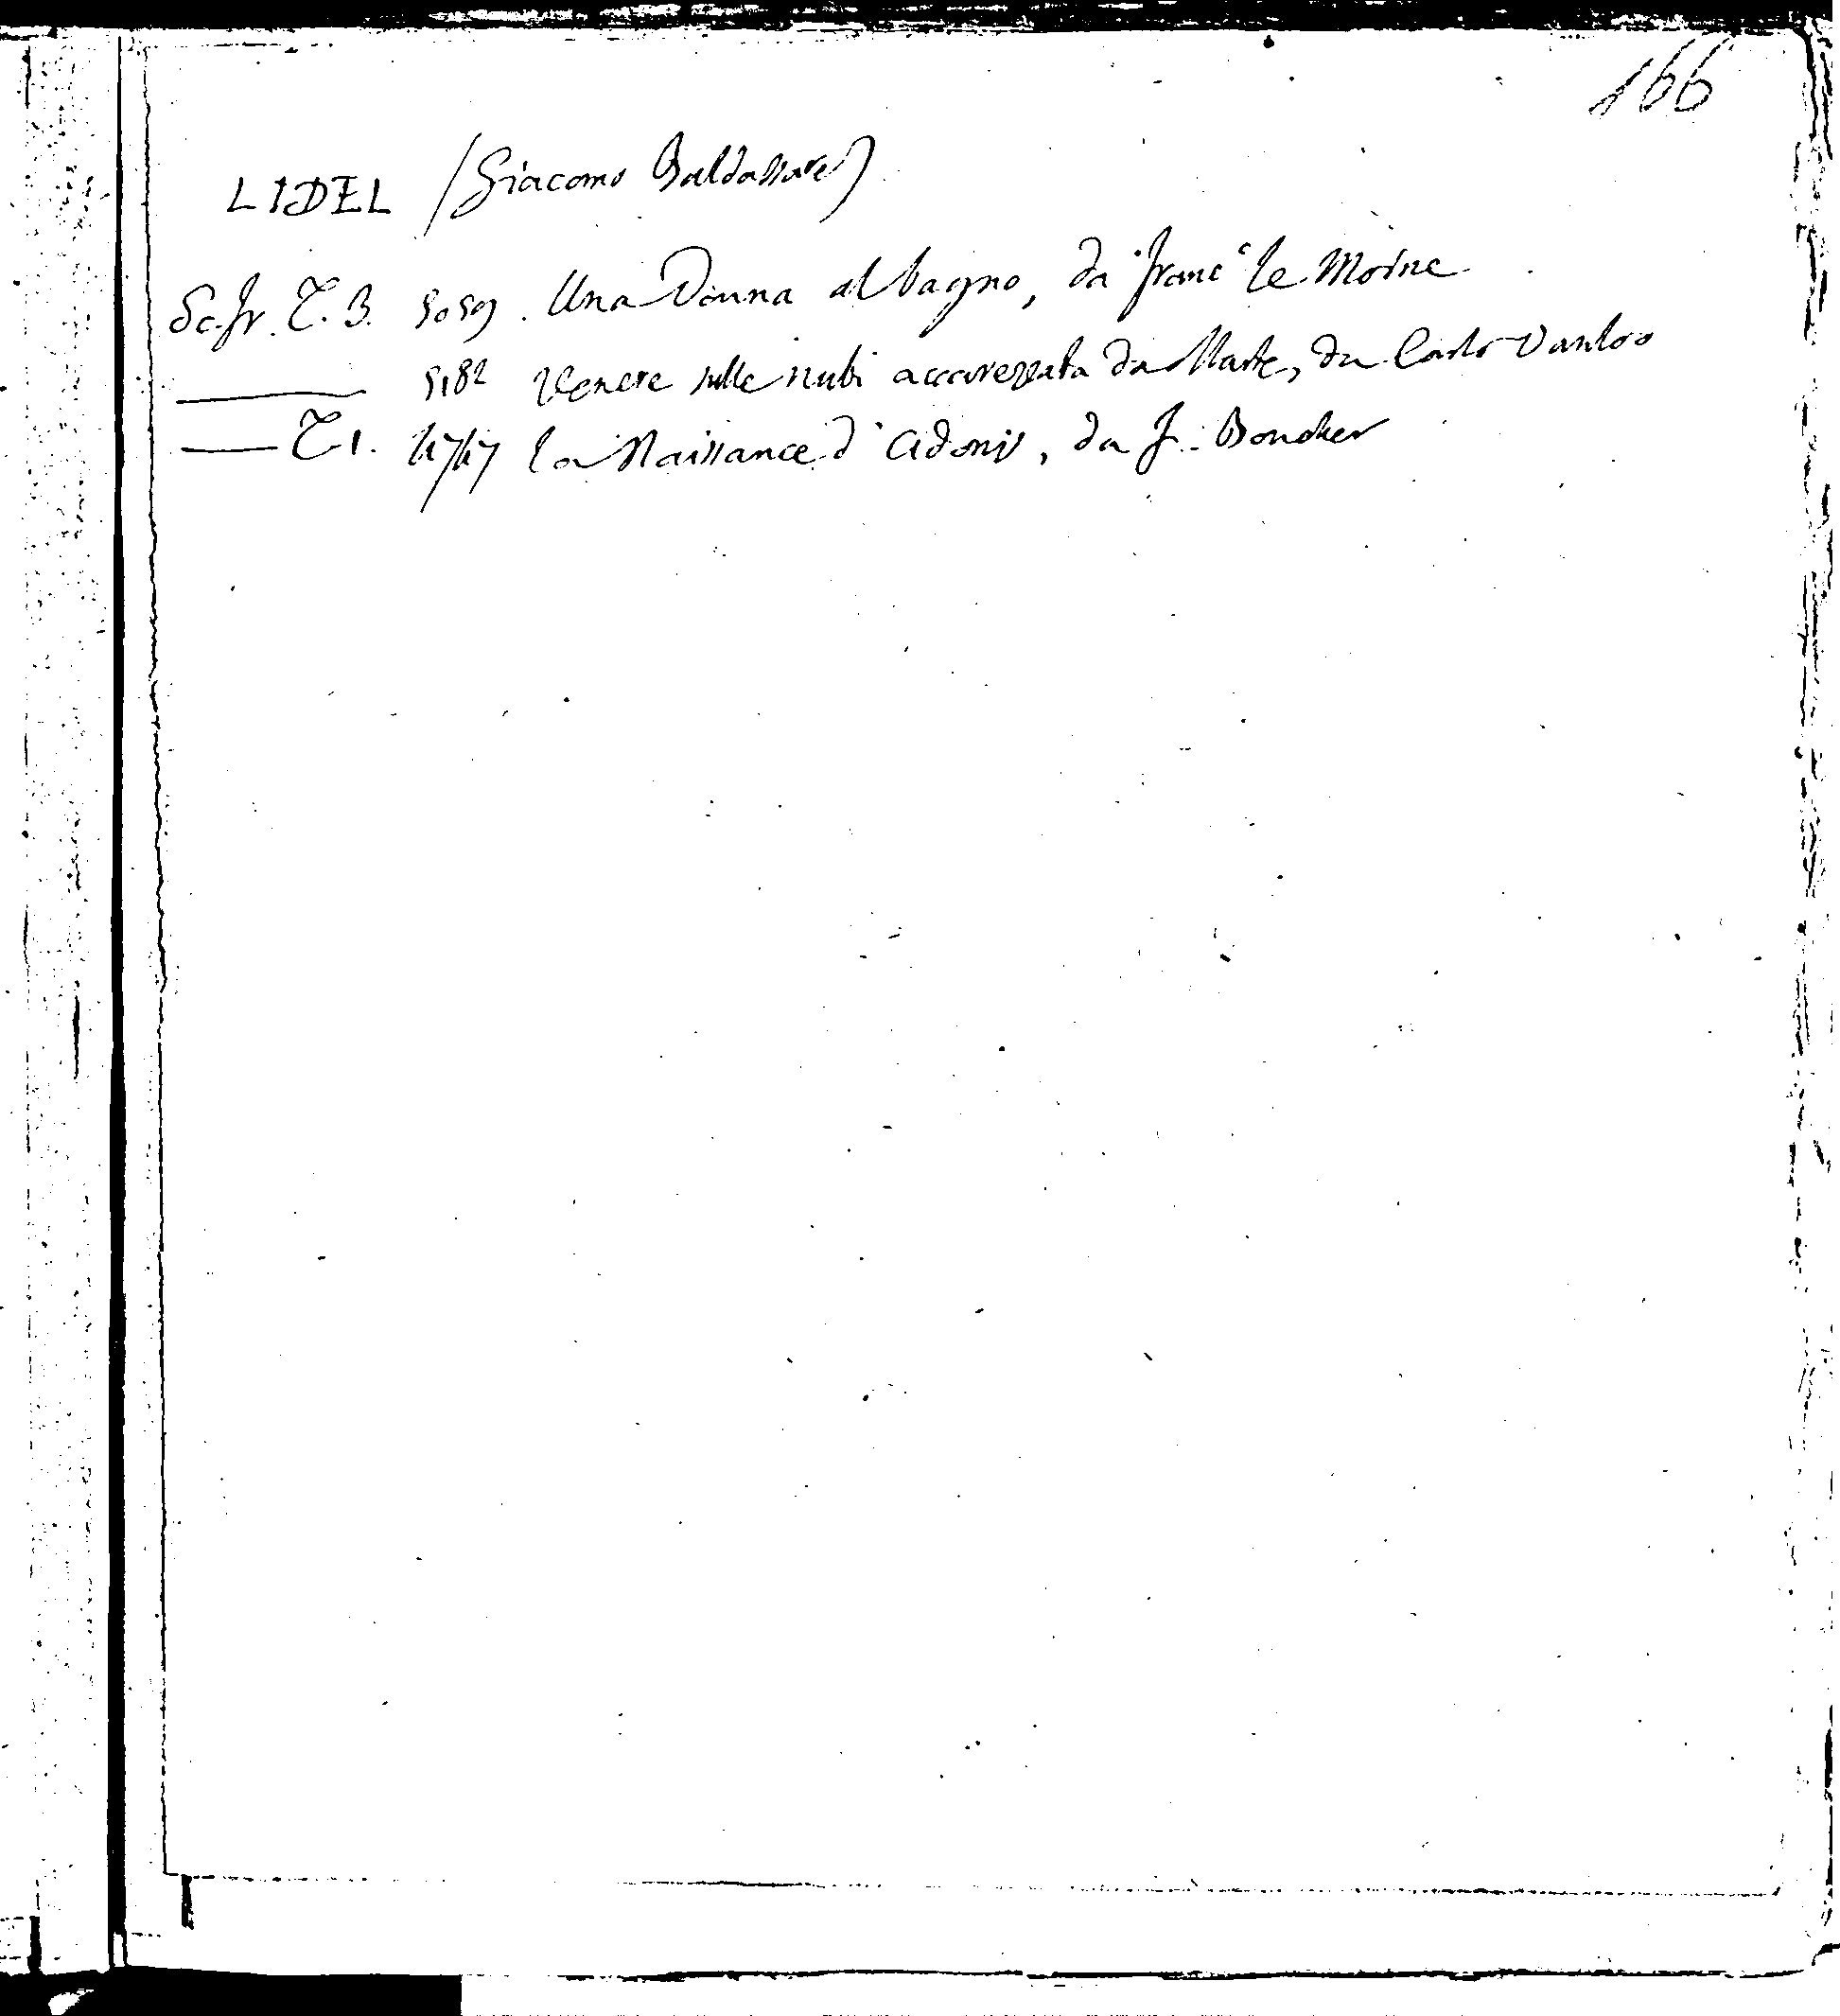 166
LIDEL (Giacomo Baldassare)
Sc. fr. T. 3. 5059. Una Donna al bagno, da Franc.º le Moine
——— 5182 Venere sulle nubi accarezzata da Marte, da Carlo Vanloo
—— T 1. la Naissance d'Adonis, da F. Boucher